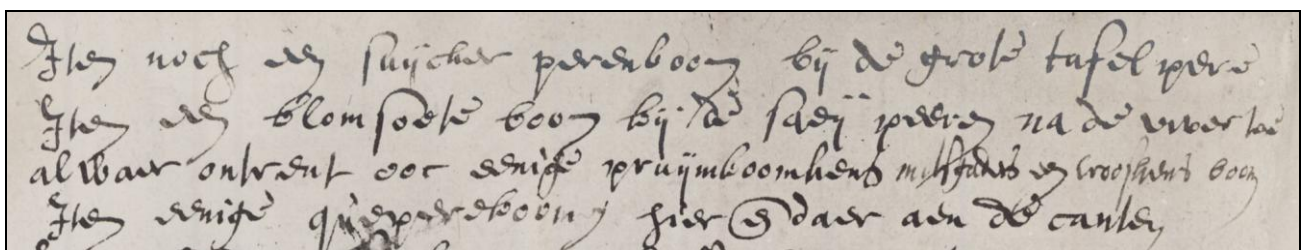 Item noch een suijcker perenboom bij de grote tafelpere
Item een blomsoete boom bij de saeij peeren na de vver toe
alwaer ontrent ooc eenige pruijmboomkens en boom
Item eenige quepereboom hier en daer aen de canten